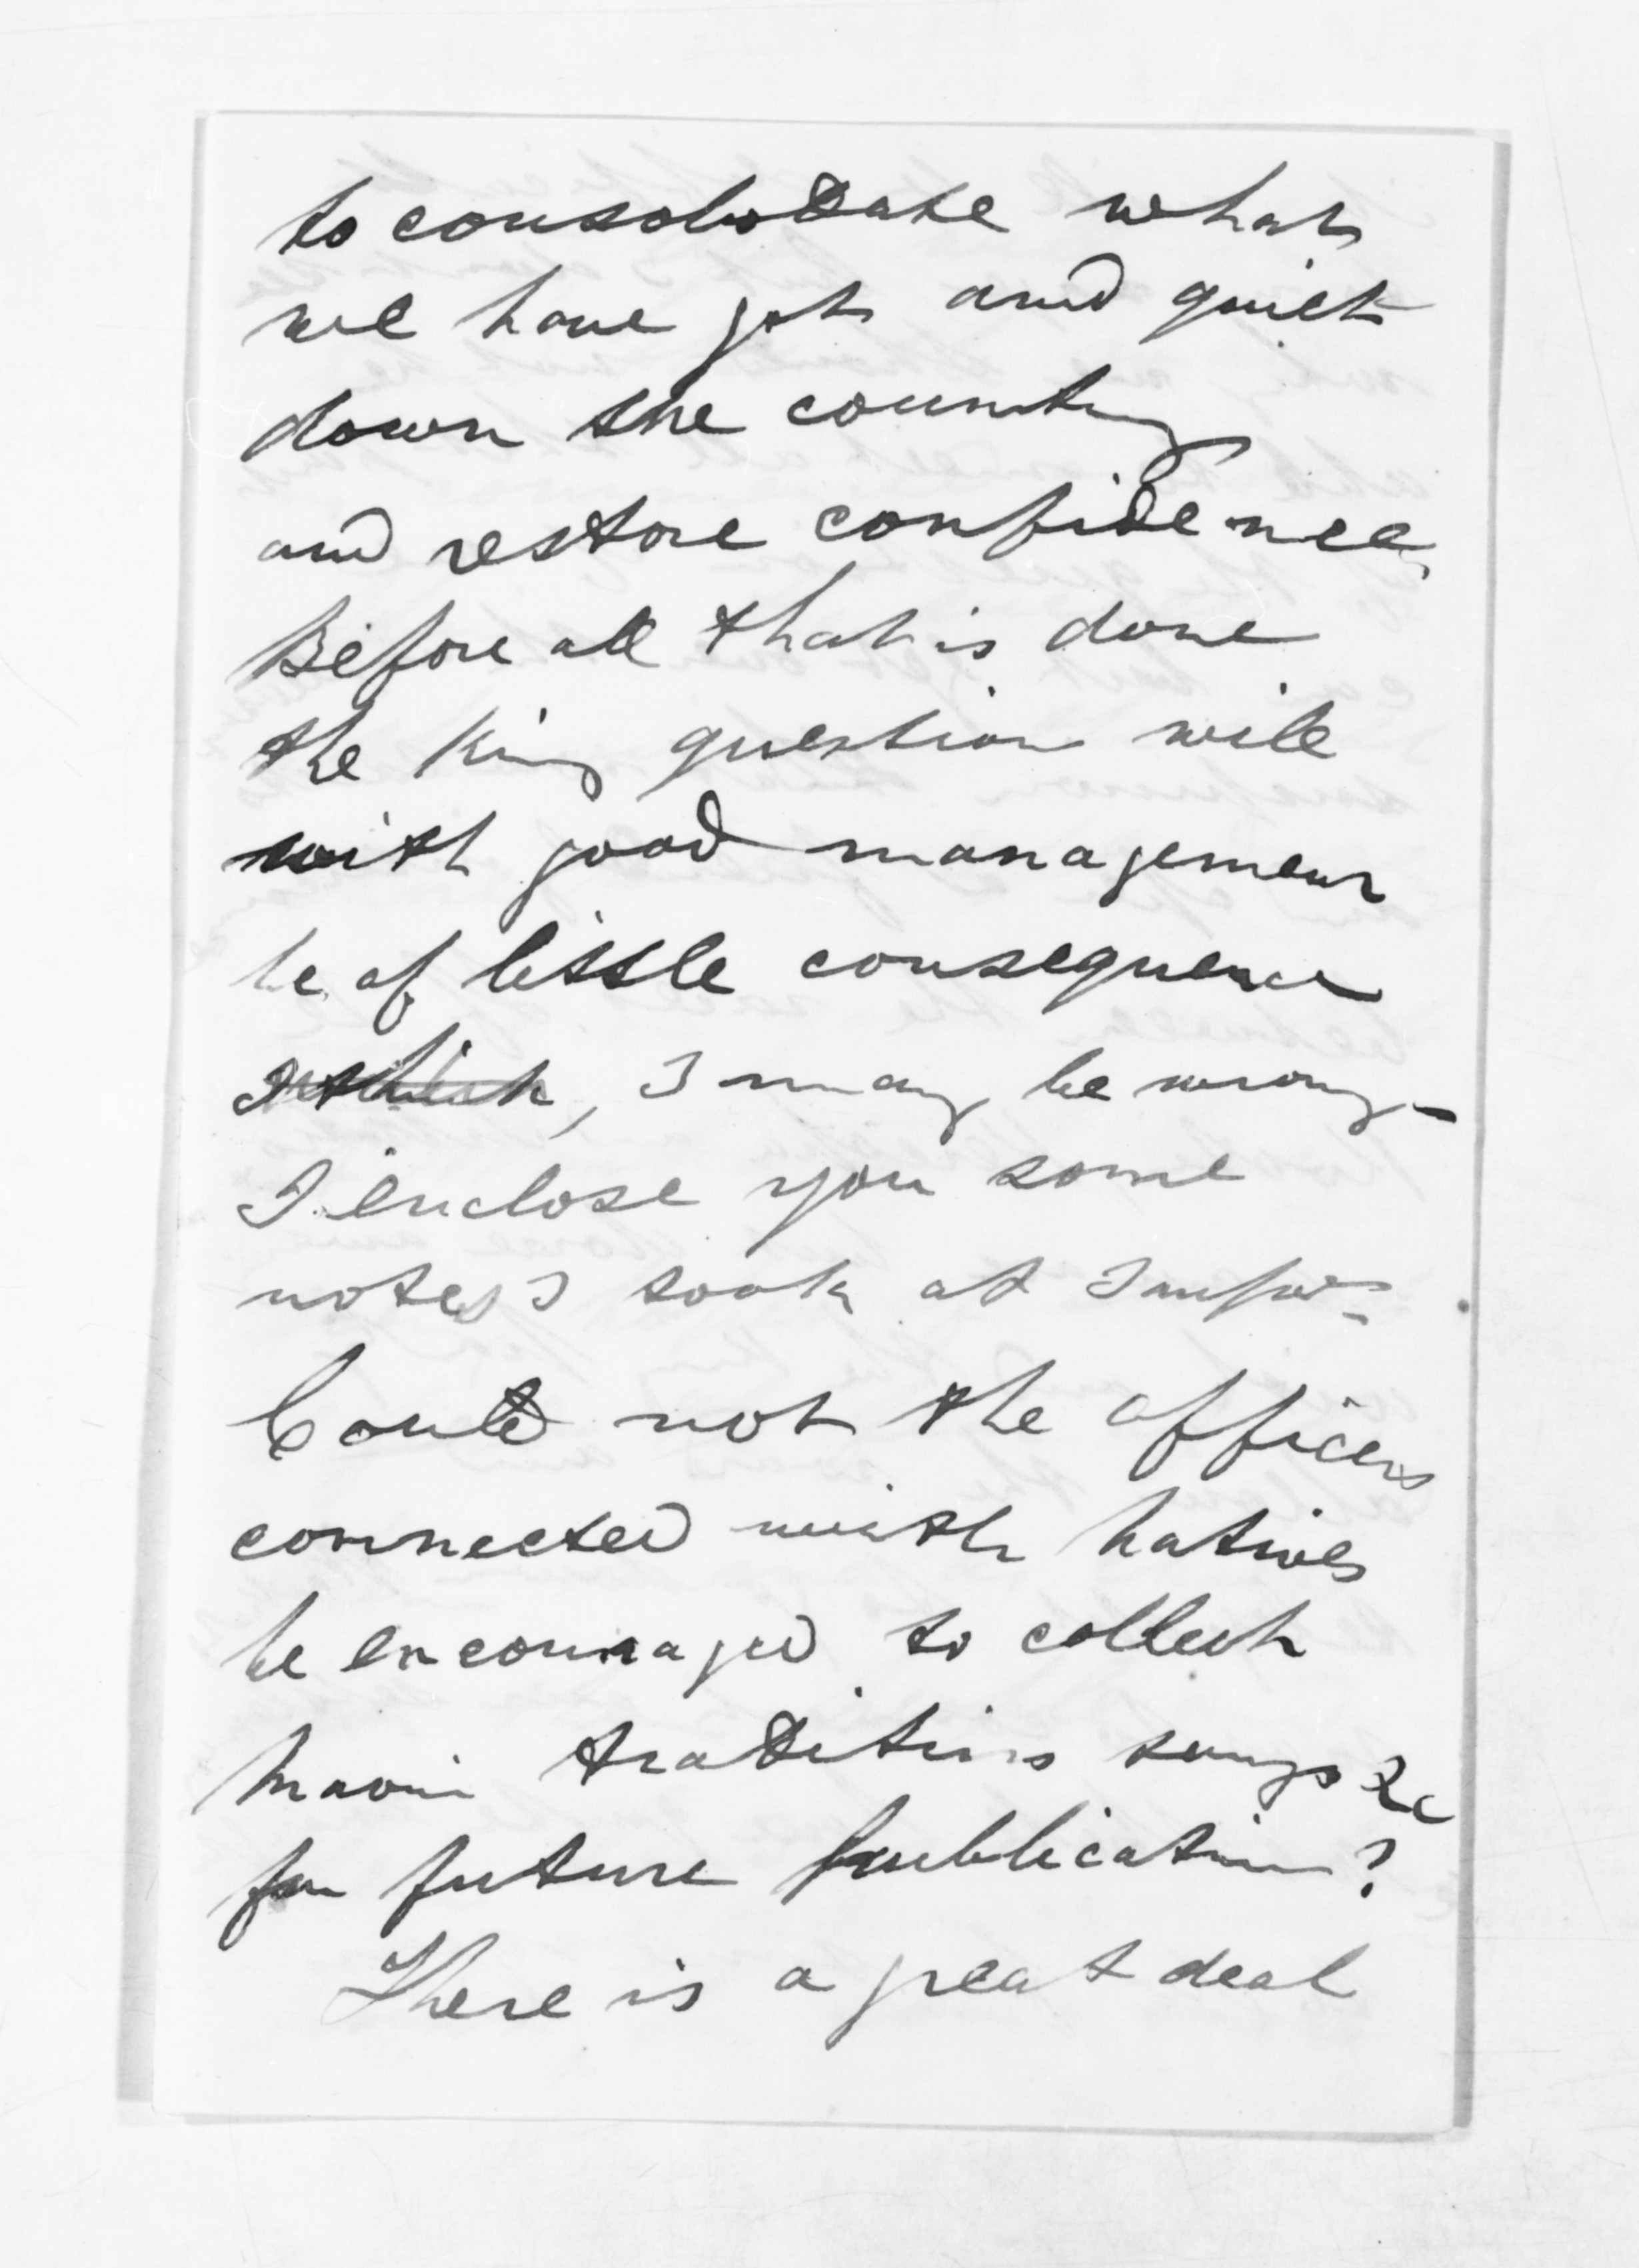 to consolodate what
we have got and quiet
down the country
and restore confidence,
Before all that is done
the King question will
with good management
be of little consequence
I think, I may be wrong -
I enclose you some
notes I took at
Could not the officers
connected with natives
be encouraged to collect
Maori traditions songs &c
for future publication?
There is a great deal